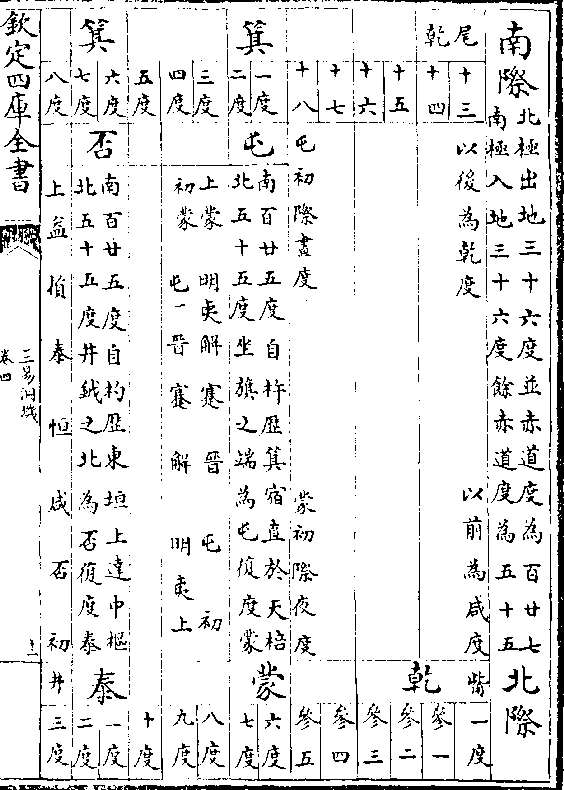 南際
北極出地三十六度並赤道度為百廿七
南極入地三十六度餘赤道度為五十五
北際
尾 乾
十三 以後為乾度 以前為咸度 觜 一度
十四 參一
十五 參二
十六 參三 乾
十七 參四
十八 屯初際晝度 蒙初際夜度 參五
箕
一度 屯 南百廿五度自杵歷箕宿直於天棓 蒙 六度
二度 北五十五度坐旗之端為屯復度蒙 七度
三度 上蒙 明夷解蹇 晉 屯 初 八度
四度 初蒙 屯一晉蹇 解 明夷上 九度
五度 十度
箕
六度 否 南百廿五度自杓歷東垣上達中樞 泰 一度
七度 北五十五度井鉞之北為否復度泰 二度
八度 上益損泰恒咸否初 井 三度
欽定四庫全書
三易洞璣
卷四